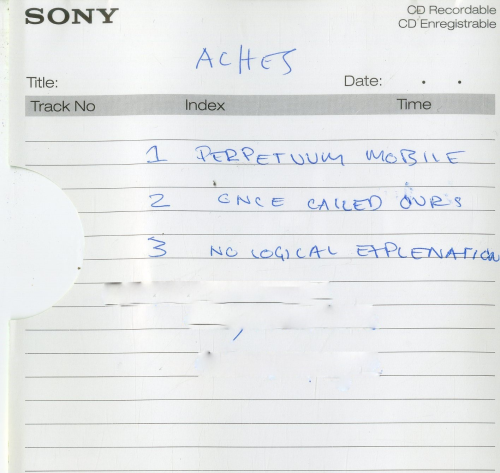 SONY
CD Recordable
CD Enregistrable
ACHES
Title:
Date: . .
Track No Index Time
1 PERPETUUM MOBILE
2 ONCE CALLED OURS
3 NO LOGICAL EXPLENATION